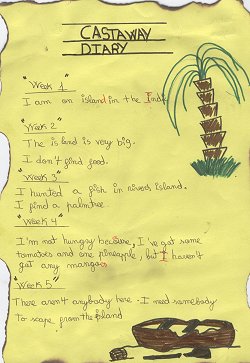 CASTAWAY
DIARY
"Week 1"
I am on island in the Indi
"Week 2"
The island is very big.
I don't find food.
"Week 3"
I hunted a fish in river island.
I find a palmtree.
"Week 4"
I'm not hungry because, I've got some
tomatoes and one pineapple, but I haven't
got any mangoes
"Week 5"
There aren't anybody here. I need somebody
to scape from the island